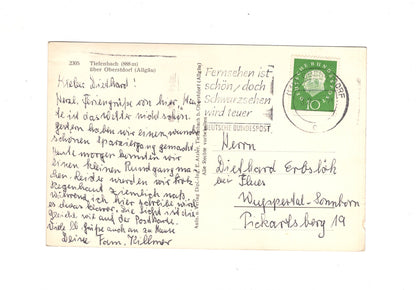 2305 Tiefenbach (888 m)
über Oberstdorf (Allgäu)
Lieber Diethard!
Herzl. Feriengrüße von hier. Heu-
te ist das Wetter nicht schön.
gestern haben wir einen wunder
schönen Spaziergang gemacht.
Heute morgen konnten wir
einen kleinen Rundgang ma-
chen. Leider wurden wir trotz
Regenhaut ziemlich naß.
Während ich hier schreibe wird
es etwas klarer. Die Sicht ist die
gleiche wie auf der Postkarte.
Viele lb. Grüße auch an zu Hause
Deine Fam. Killmer
Fernsehen ist
schön, doch
Schwarzsehen
wird teuer
DEUTSCHE BUNDESPOST
DEUTSCHE BUNDESPOST
10
Herrn
Diethard Erbslöh
bei Flues
Wuppertal-Sonnborn
Pickartsberg 19